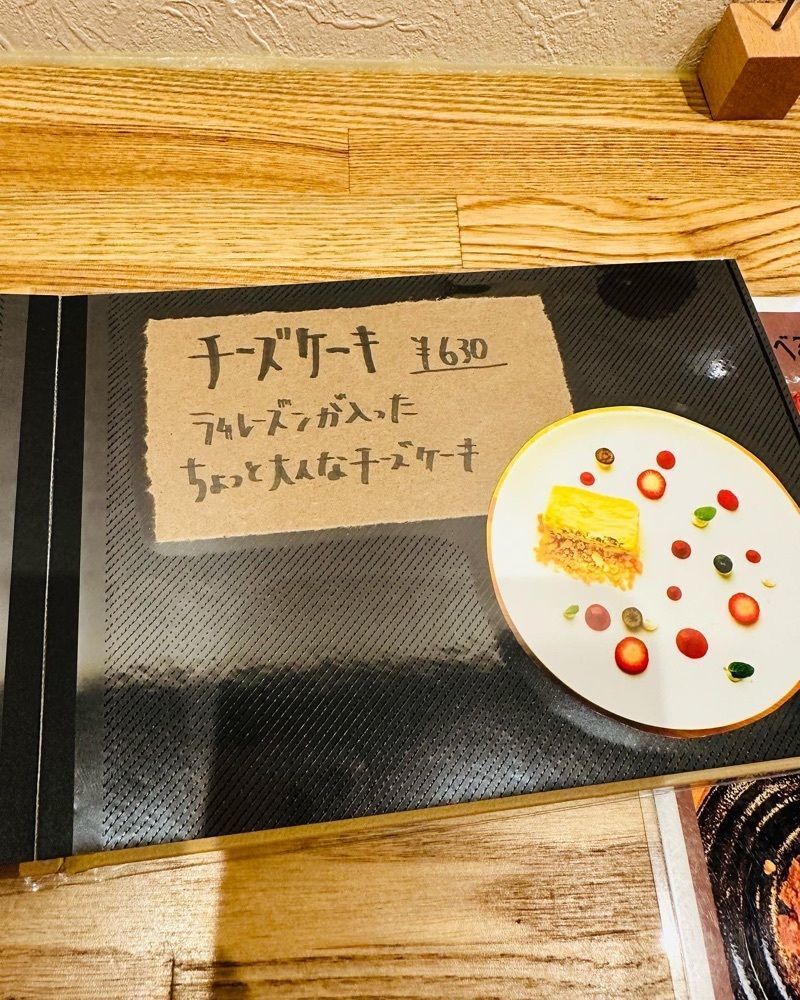 チーズケーキ ¥630
ラムレーズンが入った
ちょっと大人なチーズケーキ
べ